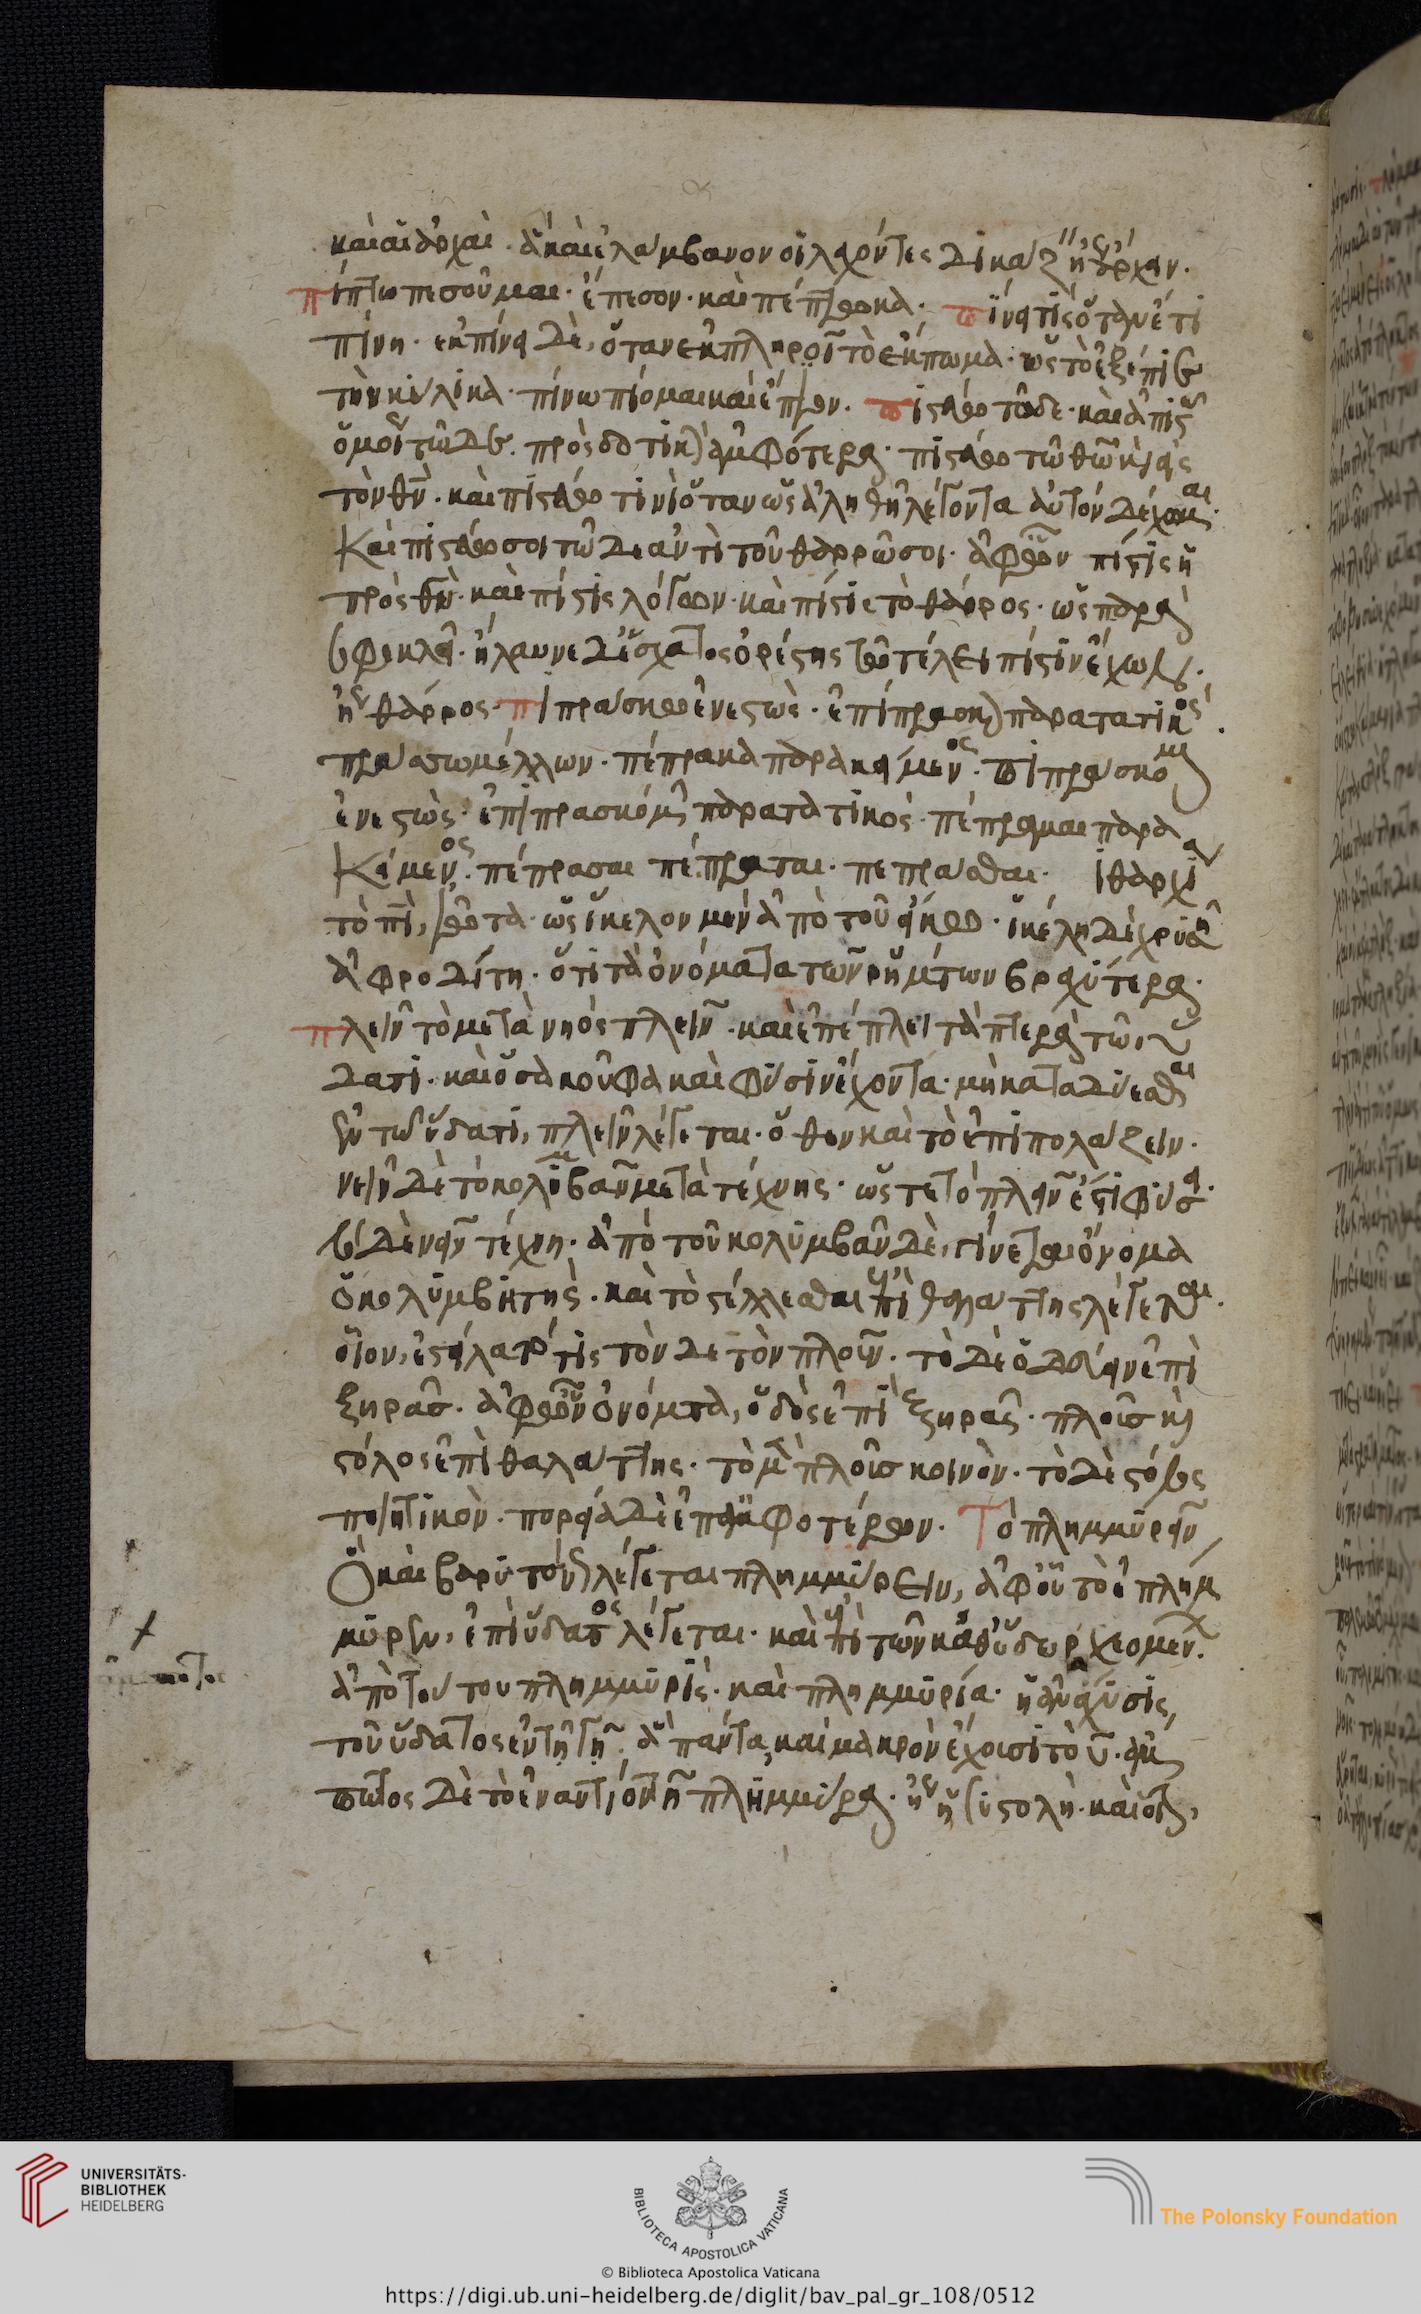 καὶ αἱ ἀρχαὶ. ἃ καὶ ἐλάμβανον οἱ λαχόντες δικάζειν ἢ ἄρχειν.
πίπτω πεσοῦμαι. ἔπεσον. καὶ πέπτωκα. πίνει τίς ὅταν ἔτι
πίνη. ἐκπίνει δὲ, ὅταν ἐκπληροῖ τὸ ἔκπωμα. ὡς τὸ ἐξέπιε
τὴν κύλικα. πίνω πίομαι καὶ ἔπιον. πιστεύω τῶδε. καὶ ἀπιστῶ
ὁμοῦ τῶδε. πρὸς δοτικὴν ἀμφότερα. πιστεύω τῶ θεῶ καὶ εἰς
τὸν θν. καὶ πιστεύω τινὶ ὅταν ὡς ἀληθῆ λέγοντα αὐτὸν δέχωμαι.
Καὶ πιστεύω σοι τῶδε ἀντὶ τοῦ θαρρῶ σοι. ἀφ' ὧν πίστις ἡ
πρὸς θν. καὶ πίστις λόγων. καὶ πίστις τὸ θάρρος. ὡς παρὰ
σοφοκλεῖ. ἤλαυνε δ' ἔσχατος ὀρέστης τῶ τέλει πίστιν ἔχων.
ἤγουν θάρρος. πιπράσκω ἐνεστὼς. ἐπίπρασκον παρατατικός.
πράσω μέλλων. πέπρακα παρακείμενος. πιπράσκομαι
ἐνεστὼς. ἐπιπρασκόμην παρατατικός. πέπραμαι παρα
Κείμενος. πέπρασαι πέπραται. πεπρᾶσθαι.
τὸ πῖ, ἰῶτα. ὡς ἴκελον μὲν ἀπὸ τοῦ εἴκω. ἰκέλη δὲ χρυσῆ
ἀφροδίτη. ὅτι τὰ ὀνόματα τῶν ῥημάτων βραχύτερα.
πλεῖν τὸ μετὰ νηὸς πλεῖν. καὶ ἐπέπλει τὰ πτερὰ τῶ ὕ
δατι. καὶ ὅσα κοῦφα καὶ φύσιν ἔχοντα. μὴ καταδύεσθαι
ἐν τῶ ὕδατι, πλεῖν λέγεται. ὅθεν καὶ τὸ ἐπιπολάζειν.
νεῖν δὲ τὸ κολυμβᾶν μετὰ τέχνης. ὥστε τὸ πλεῖν ἐστὶ φύσει.
τὸ δὲ νεῖν τέχνη. ἀπὸ τοῦ κολυμβᾶν δὲ, γίνεται ὄνομα
ὁ κολυμβητὴς. καὶ τὸ στέλλεσθαι ἐπὶ θαλάττης λέγεται.
οἷον, ἐστείλατό τις τόνδε τὸν πλοῦν. τὸ δὲ ὁδεύειν ἐπὶ
ξηρᾶς. ἀφ' ὧν ὀνόματα, ὁδὸς ἐπὶ ξηρᾶς. πλοῦς καὶ
στόλος ἐπὶ θαλάττης. τὸ μὲν πλοῦς κοινὸν. τὸ δὲ στόλος
ποιητικὸν. πορεία δὲ ἐπ' ἀμφοτέρων. Τὸ πλημμυρεῖν
Ὃ καὶ βαρύτονον λέγεται πλημμύρειν, ἀφ' οὗ τὸ ἐπλήμ
μυρεν, ἐπὶ ὕδατος λέγεται. καὶ ἐπὶ τῶν καθ' ὕδωρ χεομένων.
ἀπὸ τούτου πλημμυρὶς. καὶ πλημμυρία. ἡ ἀνάχυσις,
τοῦ ὕδατος ἐν τῆ γῆ. ἃ πάντα, καὶ μακρὸν ἔχουσι τὸ ῦ. ἄμ
πωτος δὲ τὸ ἐναντίον τῆ πλημμύρα. ἤγουν ἡ συστολὴ. καὶ
UNIVERSITÄTS-
BIBLIOTHEK
HEIDELBERG
BIBLIOTECA APOSTOLICA VATICANA
The Polonsky Foundation
© Biblioteca Apostolica Vaticana
https://digi.ub.uni-heidelberg.de/diglit/bav_pal_gr_108/0512